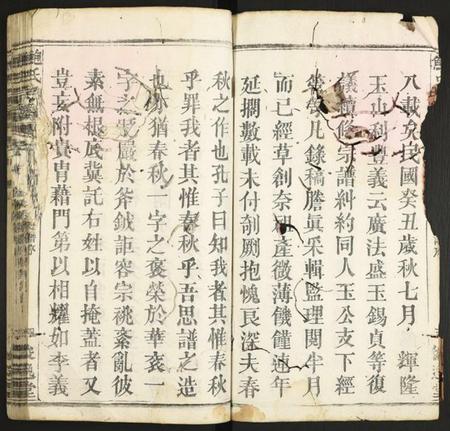 八載矣民國癸丑歲秋七月 輝隆
玉山利豐義云廣法盛玉錫貞等復
議續修宗譜糾約同人玉公支下經
費每凡錄稿謄眞采輯監理閱半月
而已經草創奈祀產微薄饑饉連年
延擱數載未付剞劂抱愧良深夫春
秋之作也孔子曰知我者其惟春秋
乎罪我者其惟春秋乎吾思譜之造
也亦猶春秋一字之褒榮於華袞一
字之貶嚴於斧鉞詎容宗祧紊亂彼
素無根底冀託右姓以自掩蓋者又
豈妄附貴胄藉門第以相耀如李義
鮑氏